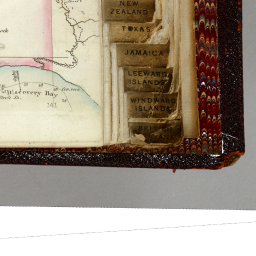 NEW
ZEALAND
TEXAS
JAMAICA
LEEWARD
ISLANDS
WINDWARD
ISLANDS
Discovery Bay